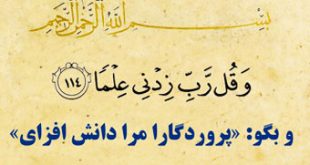 بسم الله الرحمن الرحیم
وَقُل رَّبِّ زِدْنِي عِلْمًا ﴿١١٤﴾
و بگو: «پروردگارا مرا دانش افزای»